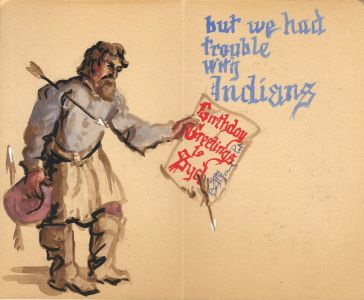 but we had
trouble
with
Indians
Birthday
Greetings
to
Syd